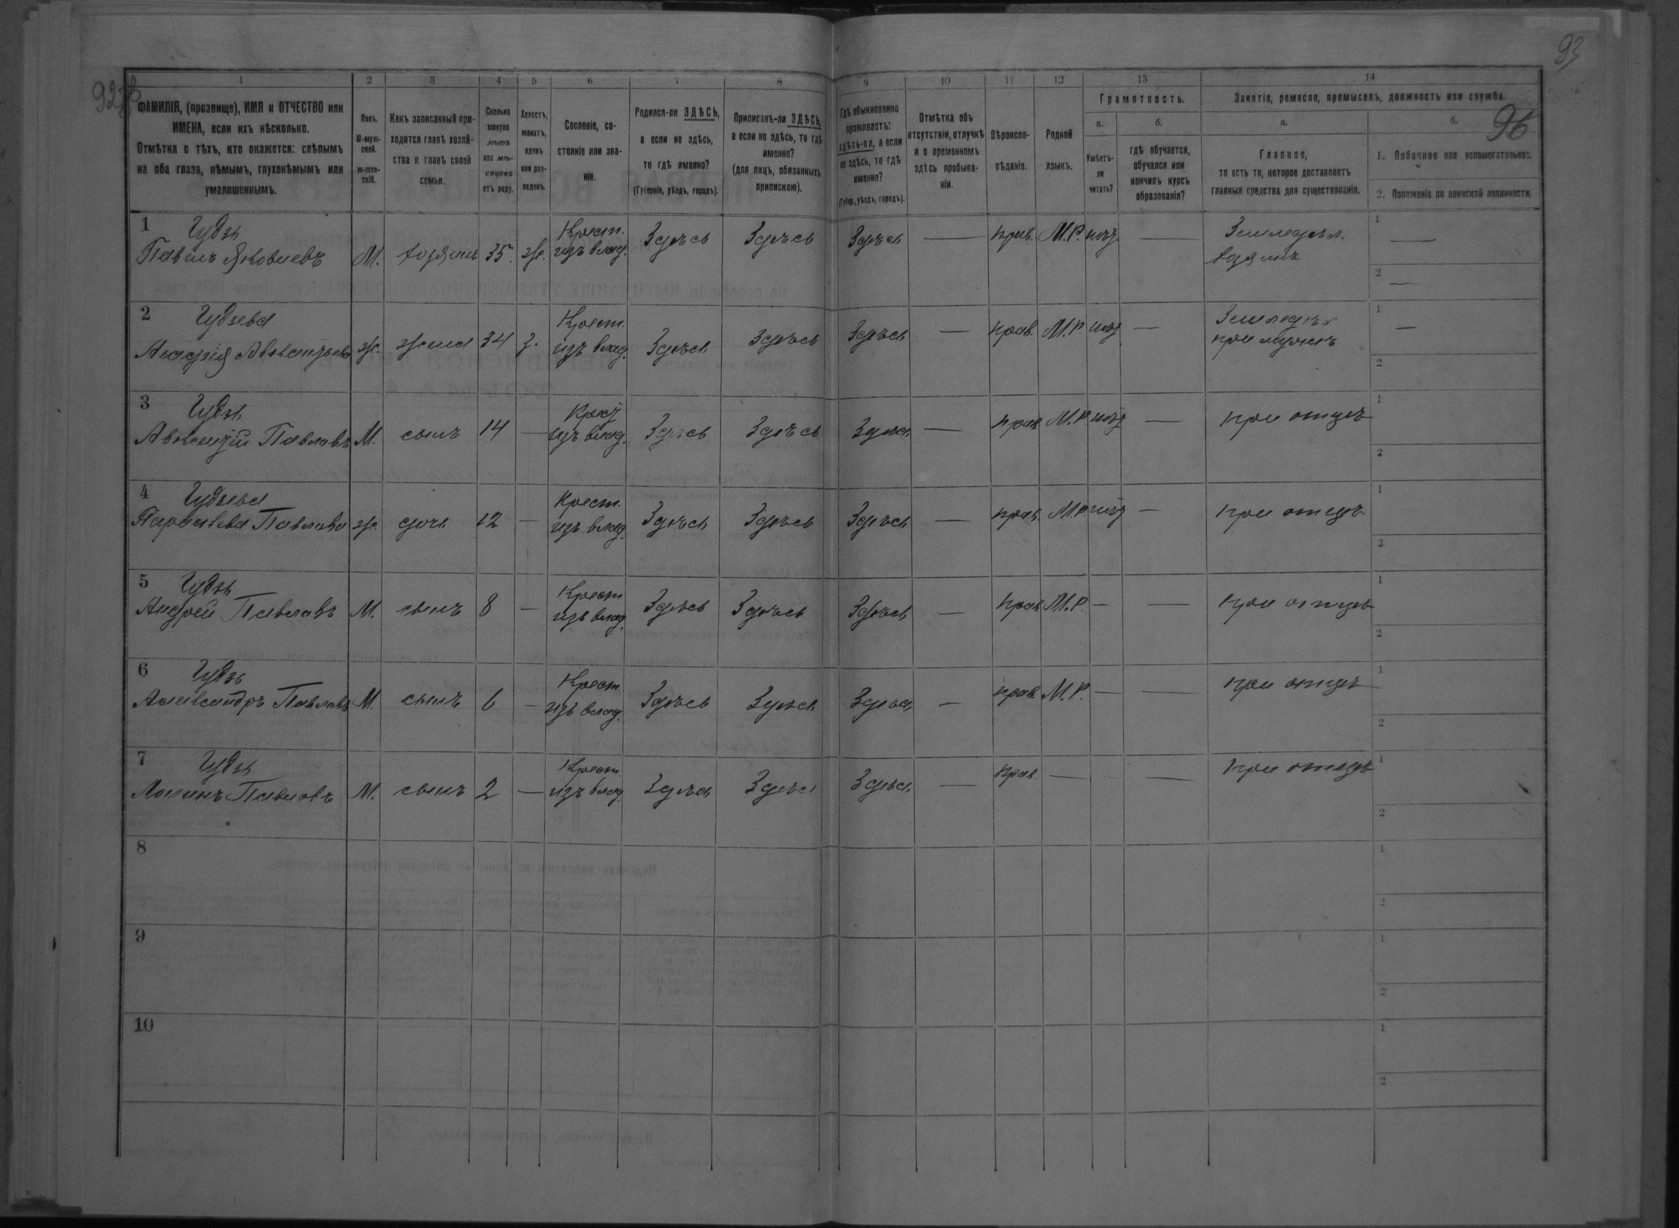 93
92об
96
1 2 3 4 5 6 7 8 9 10 11 12 13 14
ФАМИЛІЯ, (прозвище), ИМЯ и ОТЧЕСТВО или
ИМЕНА, если ихъ нѣсколько.
Отмѣтка о тѣхъ, кто окажется: слѣпымъ
на оба глаза, нѣмымъ, глухонѣмымъ или
умалишеннымъ.
Полъ.
М-муж-
ской.
ж-жен-
скій.
Какъ записанный при-
ходится главѣ хозяй-
ства и главѣ своей
семьи.
Сколько
минуло
лѣтъ
или мѣ-
сяцевъ
отъ роду.
Холостъ,
женатъ,
вдовъ
или раз-
веденъ.
Сословіе, со-
стояніе или зва-
ніе.
Родился-ли ЗДѢСЬ,
а если не здѣсь,
то гдѣ именно?
(Губернія, уѣздъ, городъ).
Приписанъ-ли ЗДѢСЬ,
а если не здѣсь, то гдѣ
именно?
(для лицъ, обязанныхъ
припискою).
Гдѣ обыкновенно
проживаетъ:
здѣсь-ли, а если
не здѣсь, то гдѣ
именно?
(Губер., уѣздъ, городъ).
Отмѣтка объ
отсутствіи, отлучкѣ
и о временномъ
здѣсь пребыва-
ніи.
Вѣроиспо-
вѣданіе.
Родной
языкъ.
Грамотность.
а.
Умѣетъ-
ли
читать?
б.
гдѣ обучается,
обучался или
кончилъ курсъ
образованія?
Занятіе, ремесло, промыселъ, должность или служба.
а.
Главное,
то есть то, которое доставляетъ
главныя средства для существованія.
б.
1. Побочное или вспомогательное.
2. Положеніе по воинской повинности.
1 Гудзь Крест. Земледѣл.
Павелъ Яковлевъ М. хозяинъ 35. ж. изъ влад. Здѣсь Здѣсь Здѣсь — прав. М.Р. нѣтъ — хозяинъ
1 —
2 —
2 Гудзева Крест. Земледѣл.
ж. жена 34 з. изъ влад. Здѣсь Здѣсь Здѣсь — прав. М.Р. нѣтъ — при мужѣ
1 —
2
3 Гудзь Крест
Павловъ М. сынъ 14 — изъ влад. Здѣсь Здѣсь Здѣсь — прав М.Р нѣтъ — при отцѣ
1
2
4 Гудзева Крест.
Павлова ж. дочь 12 — изъ влад. Здѣсь Здѣсь Здѣсь — прав. М.Р нѣтъ — при отцѣ
1
2
5 Гудзь Крест
Андрей Павловъ М. сынъ 8 — изъ влад. Здѣсь Здѣсь Здѣсь — прав М.Р. — — при отцѣ
1
2
6 Гудзь Крест
Александръ Павловъ М. сынъ 6 — изъ влад. Здѣсь Здѣсь Здѣсь — прав М.Р. — — при отцѣ
1
2
7 Гудзь Крест
Павловъ М. сынъ 2 — изъ влад. Здѣсь Здѣсь Здѣсь — прав — — при отцѣ
1
2
8
1
2
9
1
2
10
1
2